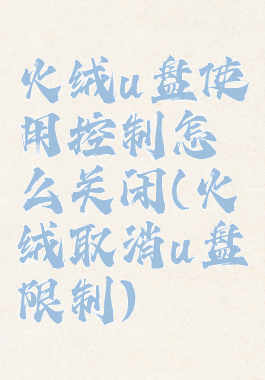 火绒u盘使
用控制怎
么关闭(火
绒取消u盘
限制)